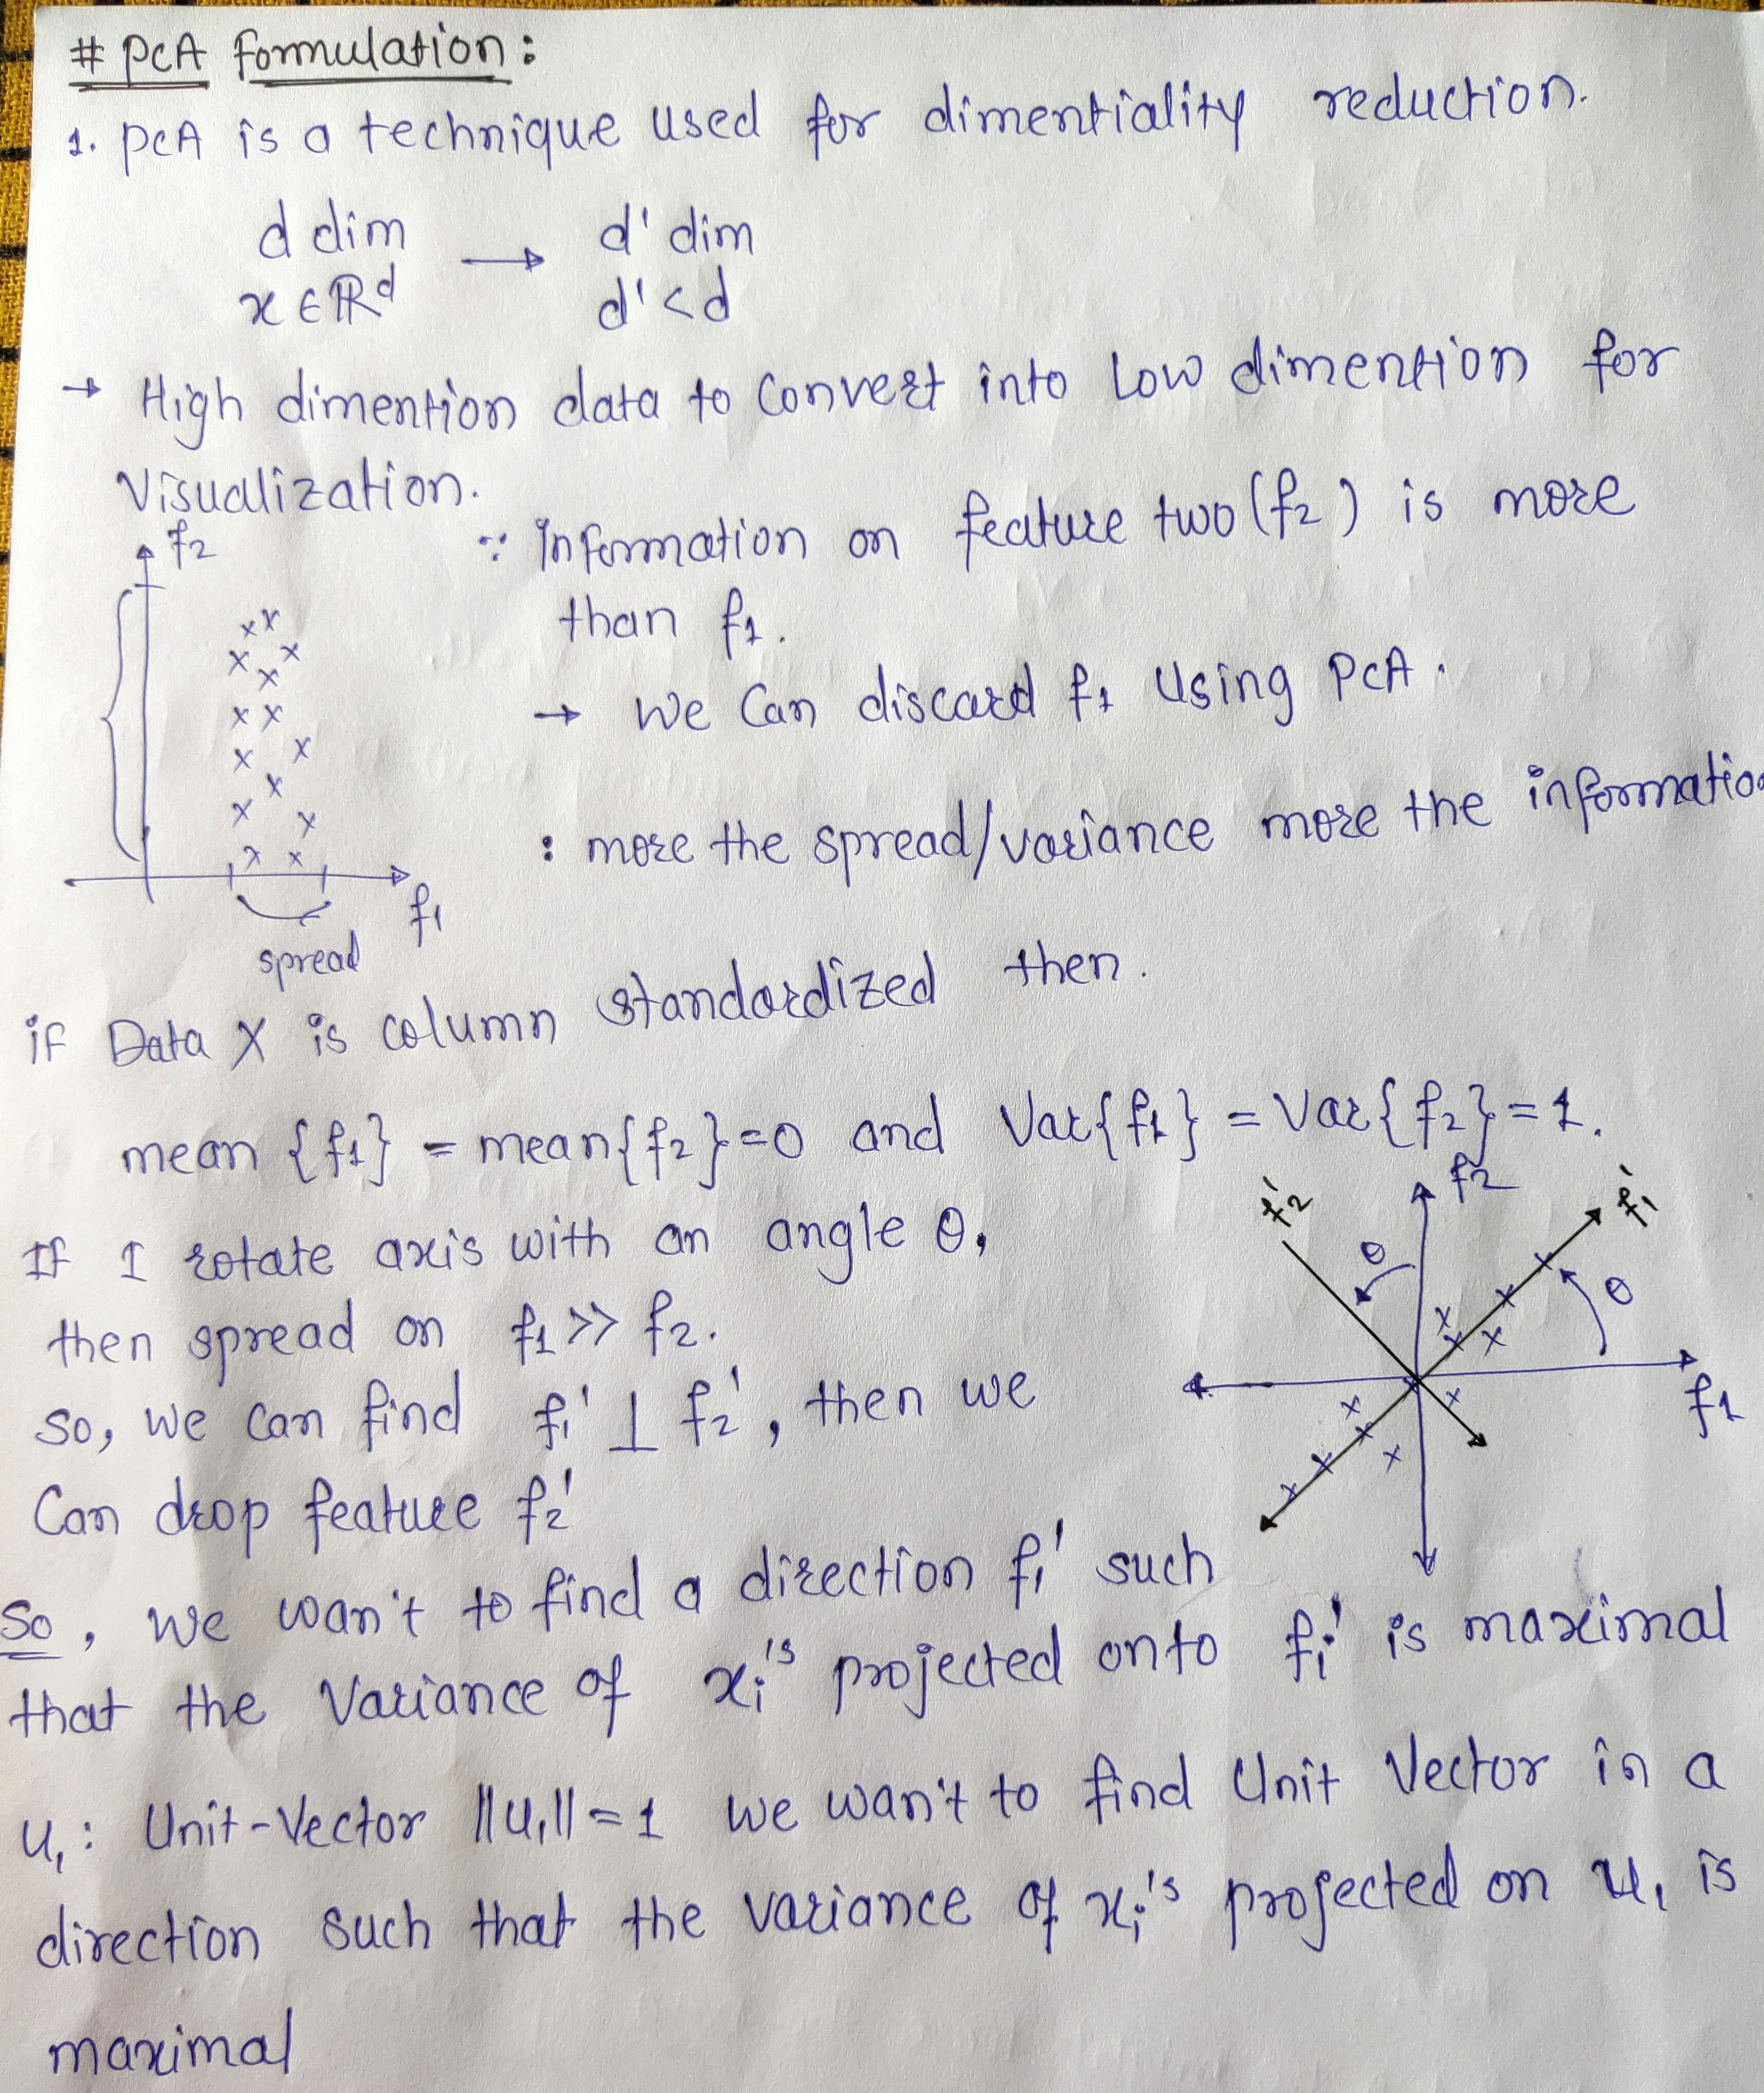 # PCA Formulation:
1. PCA is a technique used for dimentiality reduction.
d dim → d' dim
x ∈ ℝᵈ d' < d
→ High dimention data to Convert into Low dimention for
Visualization.
f₂
∵ Information on feature two (f₂) is more
than f₁.
→ We Can discard f₁ Using PCA.
: more the spread/variance more the information
f₁
spread
if Data X is column standardized then.
mean {f₁} = mean{f₂}=0 and Var{f₁} = Var{f₂}=1.
If I rotate axis with an angle θ,
then spread on f₁ >> f₂.
So, we can find f₁' ⊥ f₂', then we
Can drop feature f₂'
f₂'
f₂
f₁'
θ
θ
f₁
So, we wan't to find a direction f₁' such
that the Variance of xᵢ's projected onto f₁' is maximal
u₁: Unit-Vector ||u₁||=1 we wan't to find Unit Vector in a
direction such that the variance of xᵢ's projected on u₁ is
maximal